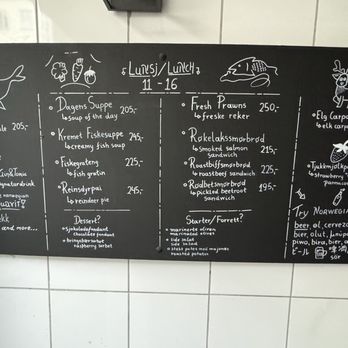 Lunsj/Lunch
11 - 16
Dagens Suppe 205,-
soup of the day
Kremet Fiskesuppe 245,-
creamy fish soup
Fiskegrateng 225,-
fish gratin
Reinsdyrpai 245,-
reindeer pie
Dessert?
sjokoladefondant
chocolate fondant
bringebærsorbet
raspberry sorbet
Fresh Prawns 250,-
freske reker
Røkelakssmørbrød
smoked salmon 225,-
sandwich
Roastbiffsmørbrød
roastbeef sandwich 225,-
Rødbetsmørbrød 195,-
pickled beetroot
sandwich
Starter/Forrett?
marinerte oliven
marinated olives
side salad
side salad
stekt potet med majones
roasted potatoes
205,-
and more...
Elg Carpa
elk carp
strawberry
Try Norwegian
beer, øl, cerveza
bier, olut,
piwo, bira, bier,
ビール 啤酒